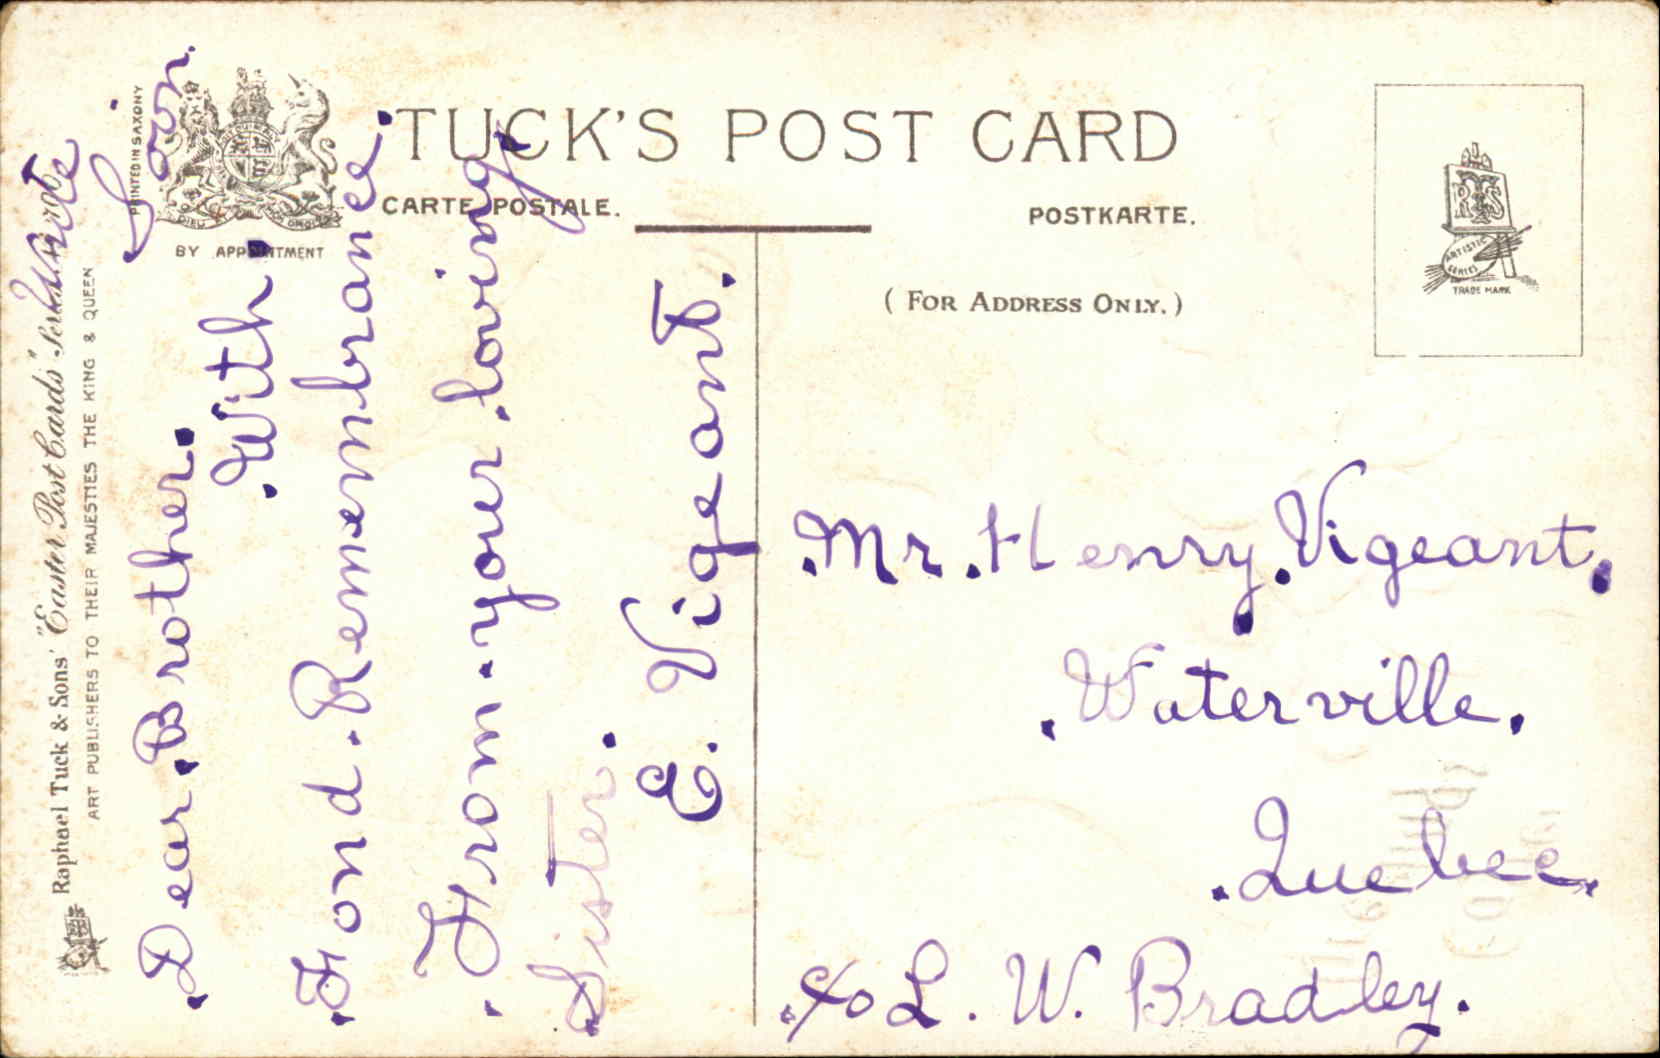 TUCK'S POST CARD
CARTE POSTALE.
POSTKARTE.
(FOR ADDRESS ONLY.)
PRINTED IN SAXONY
BY APPOINTMENT
DIEU
ARTISTIC
SERIES
TRADE MARK
Raphael Tuck & Sons' "Easter Post Cards"
ART PUBLISHERS TO THEIR MAJESTIES THE KING & QUEEN
Write
Soon.
.Dear.Brother.
.With.
.Fond.Remembrance.
.From.your.loving.
.Sister.
E. Vigeant.
.Mr.Henry.Vigeant.
.Waterville.
.Quebec.
.c/o L. W. Bradley.